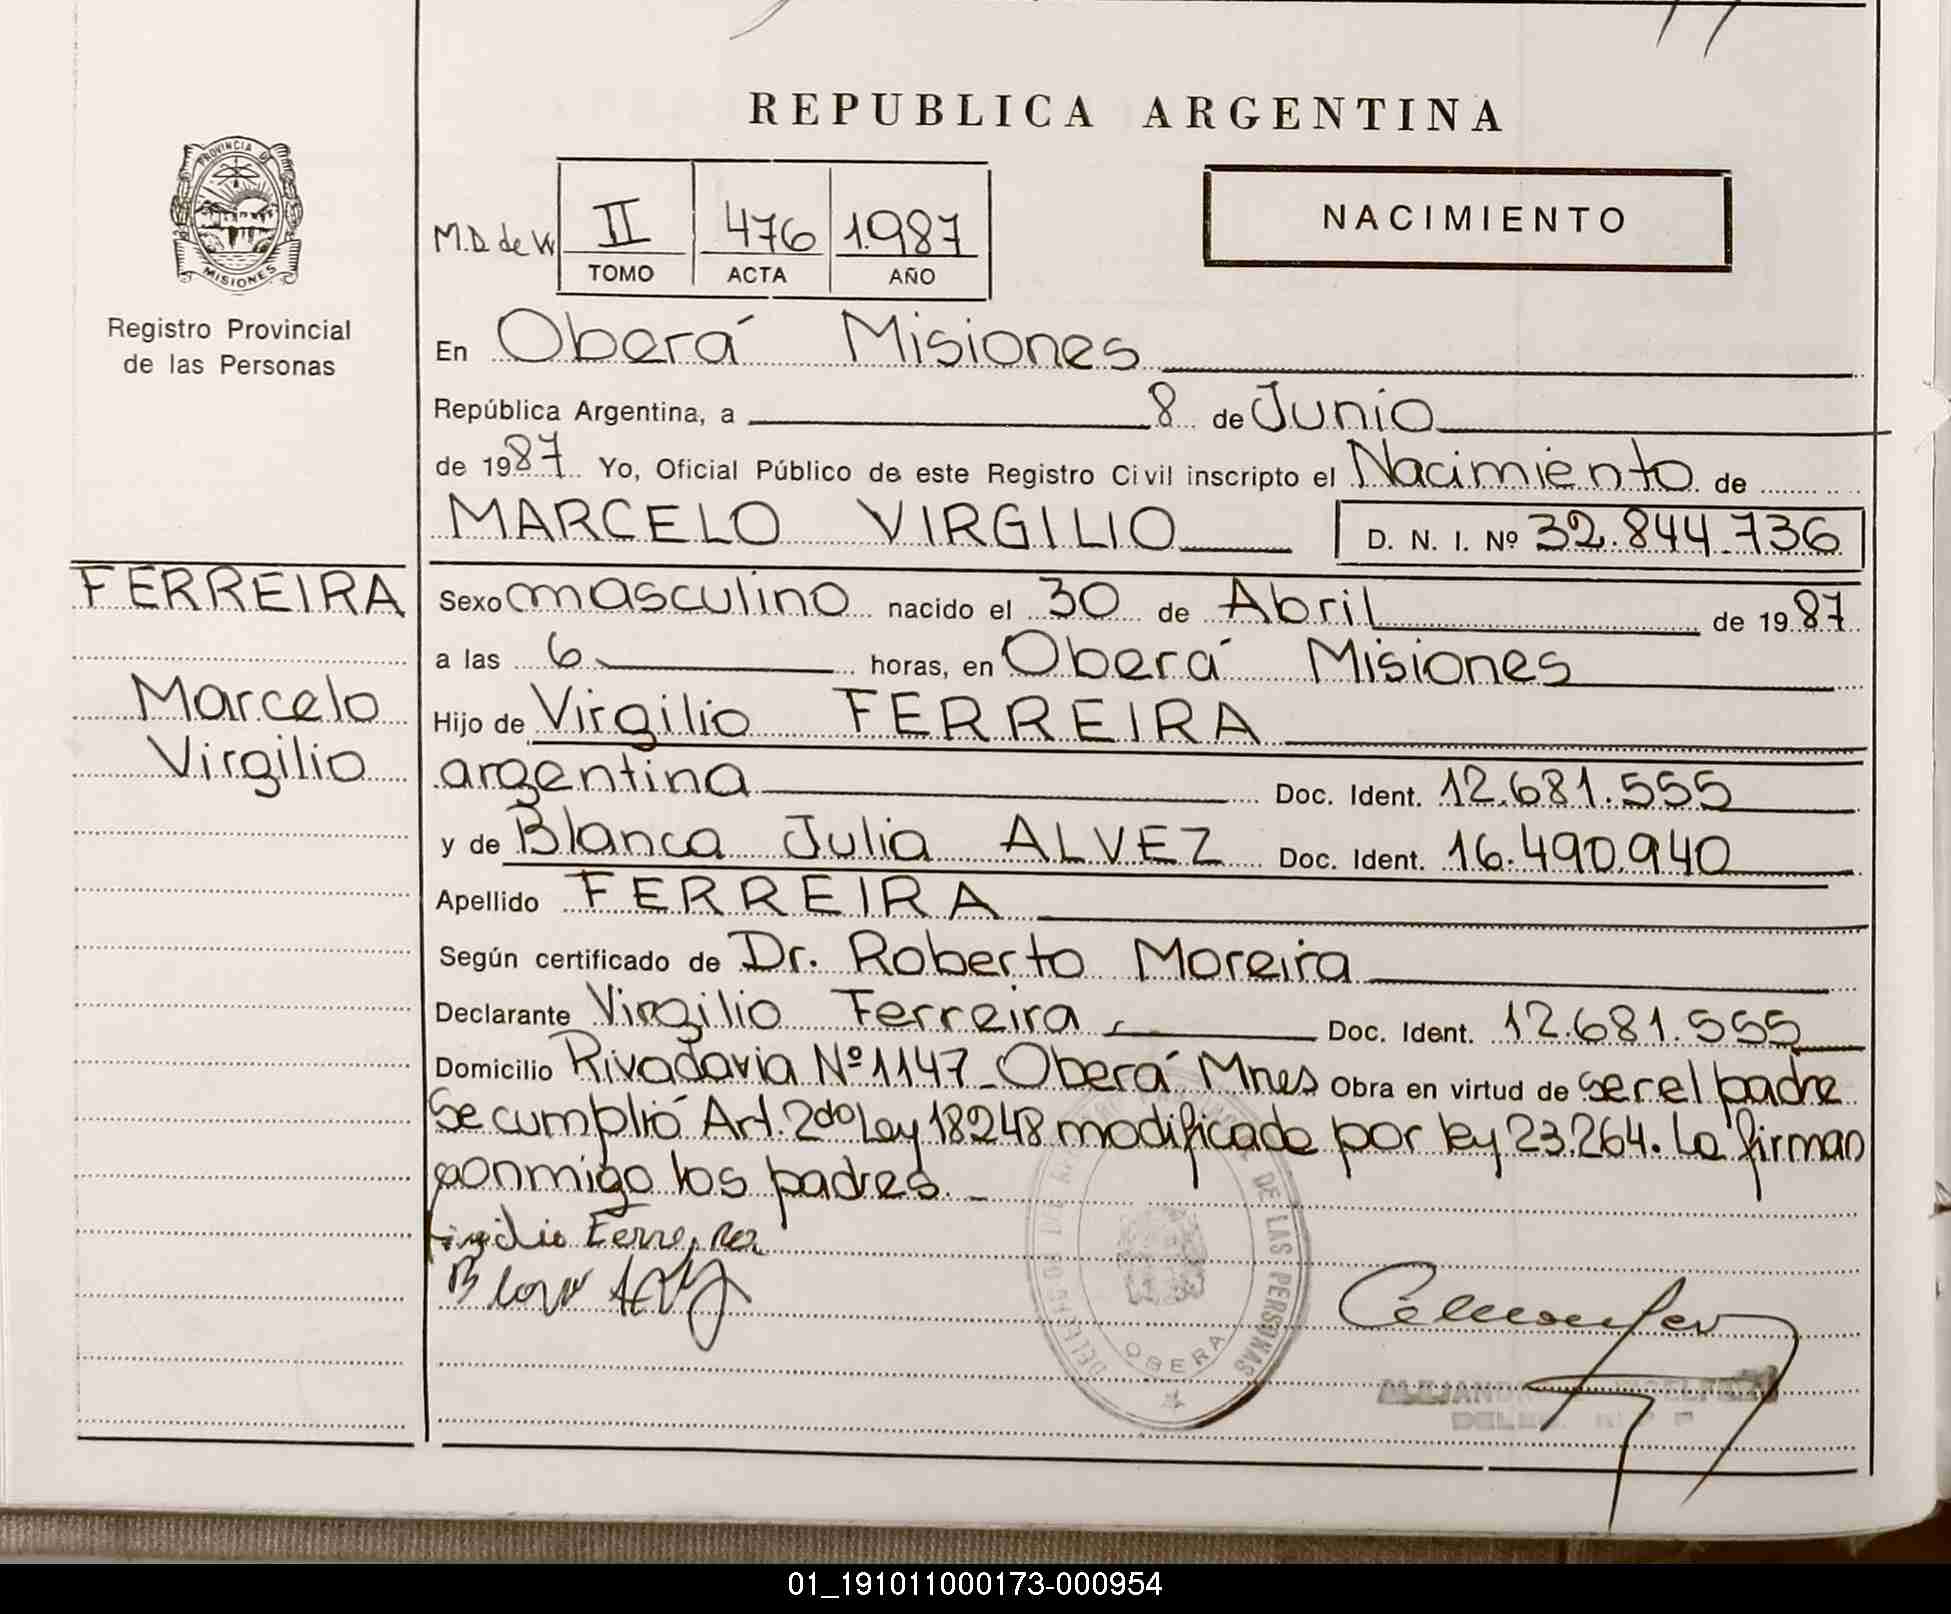 REPUBLICA ARGENTINA
PROVINCIA DE
MISIONES
Registro Provincial
de las Personas
M.D. de W
II 476 1.987
TOMO ACTA AÑO
NACIMIENTO
En Oberá Misiones
República Argentina, a 8 de Junio
de 1987 Yo, Oficial Público de este Registro Civil inscripto el Nacimiento de
MARCELO VIRGILIO D. N. I. Nº 32.844.736
FERREIRA
Marcelo
Virgilio
Sexo masculino nacido el 30 de Abril de 1987
a las 6 horas, en Oberá Misiones
Hijo de Virgilio FERREIRA
argentina Doc. Ident. 12.681.555
y de Blanca Julia ALVEZ Doc. Ident. 16.490.940
Apellido FERREIRA
Según certificado de Dr. Roberto Moreira
Declarante Virgilio Ferreira Doc. Ident. 12.681.555
Domicilio Rivadavia Nº 1147 - Oberá Mnes Obra en virtud de ser el padre
Se cumplió Art. 2do Ley 18248 modificado por ley 23.264. La firman
conmigo los padres. -
DE LAS PERSONAS
OBERA
01_191011000173-000954